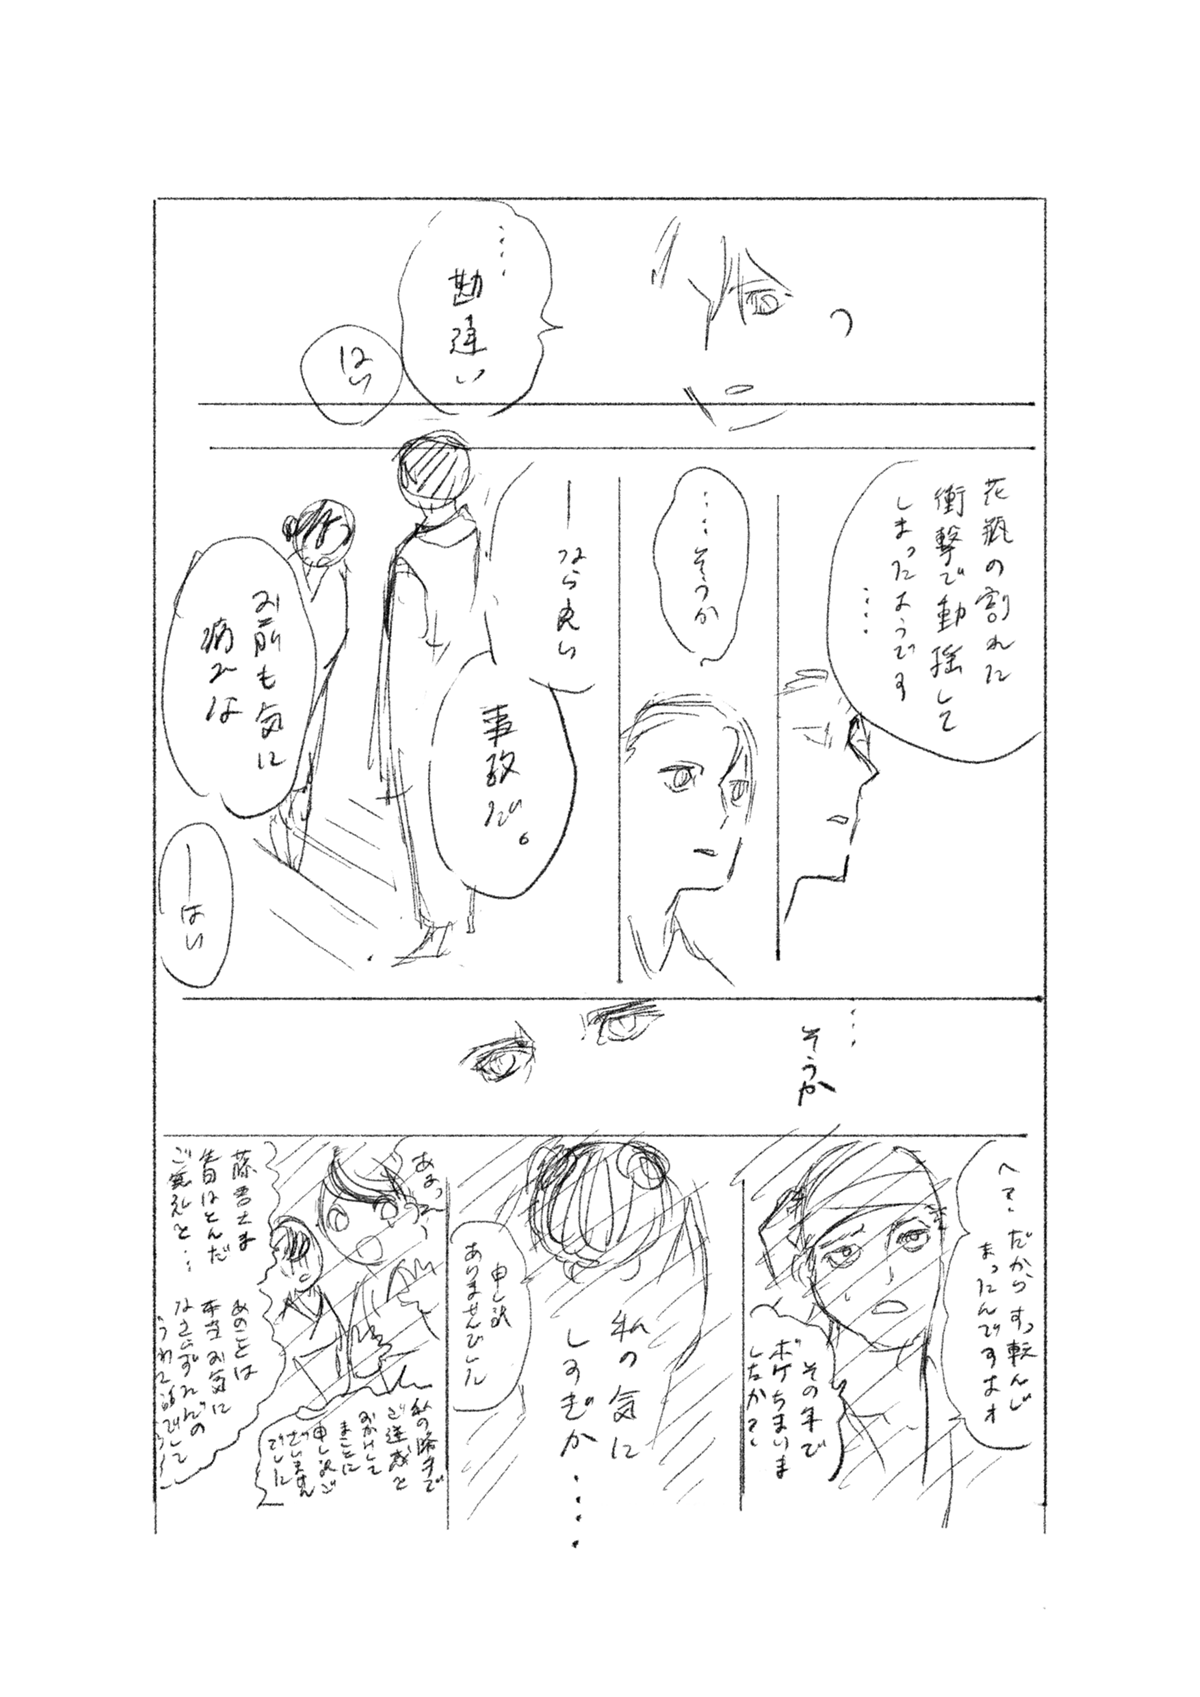 ……
勘違い
はい
花瓶の割れた
衝撃で動揺して
しまったようです
……
……そうか
―なら良い
事故だ。
お前も気に
病むな
―はい
…そうか
へえ、だからすっ転んじ
まったんですけオ
その年で
ボケちまいま
したか?
申し訳
ありませんでした
私の気に
しすぎか……
あぁっ
私の勝手で
ご迷惑を
おかけして
まことに
申し訳ご
ざいません
でした
藤君さま
昔はとんだ
ご無礼を…
あのことは
本当お気に